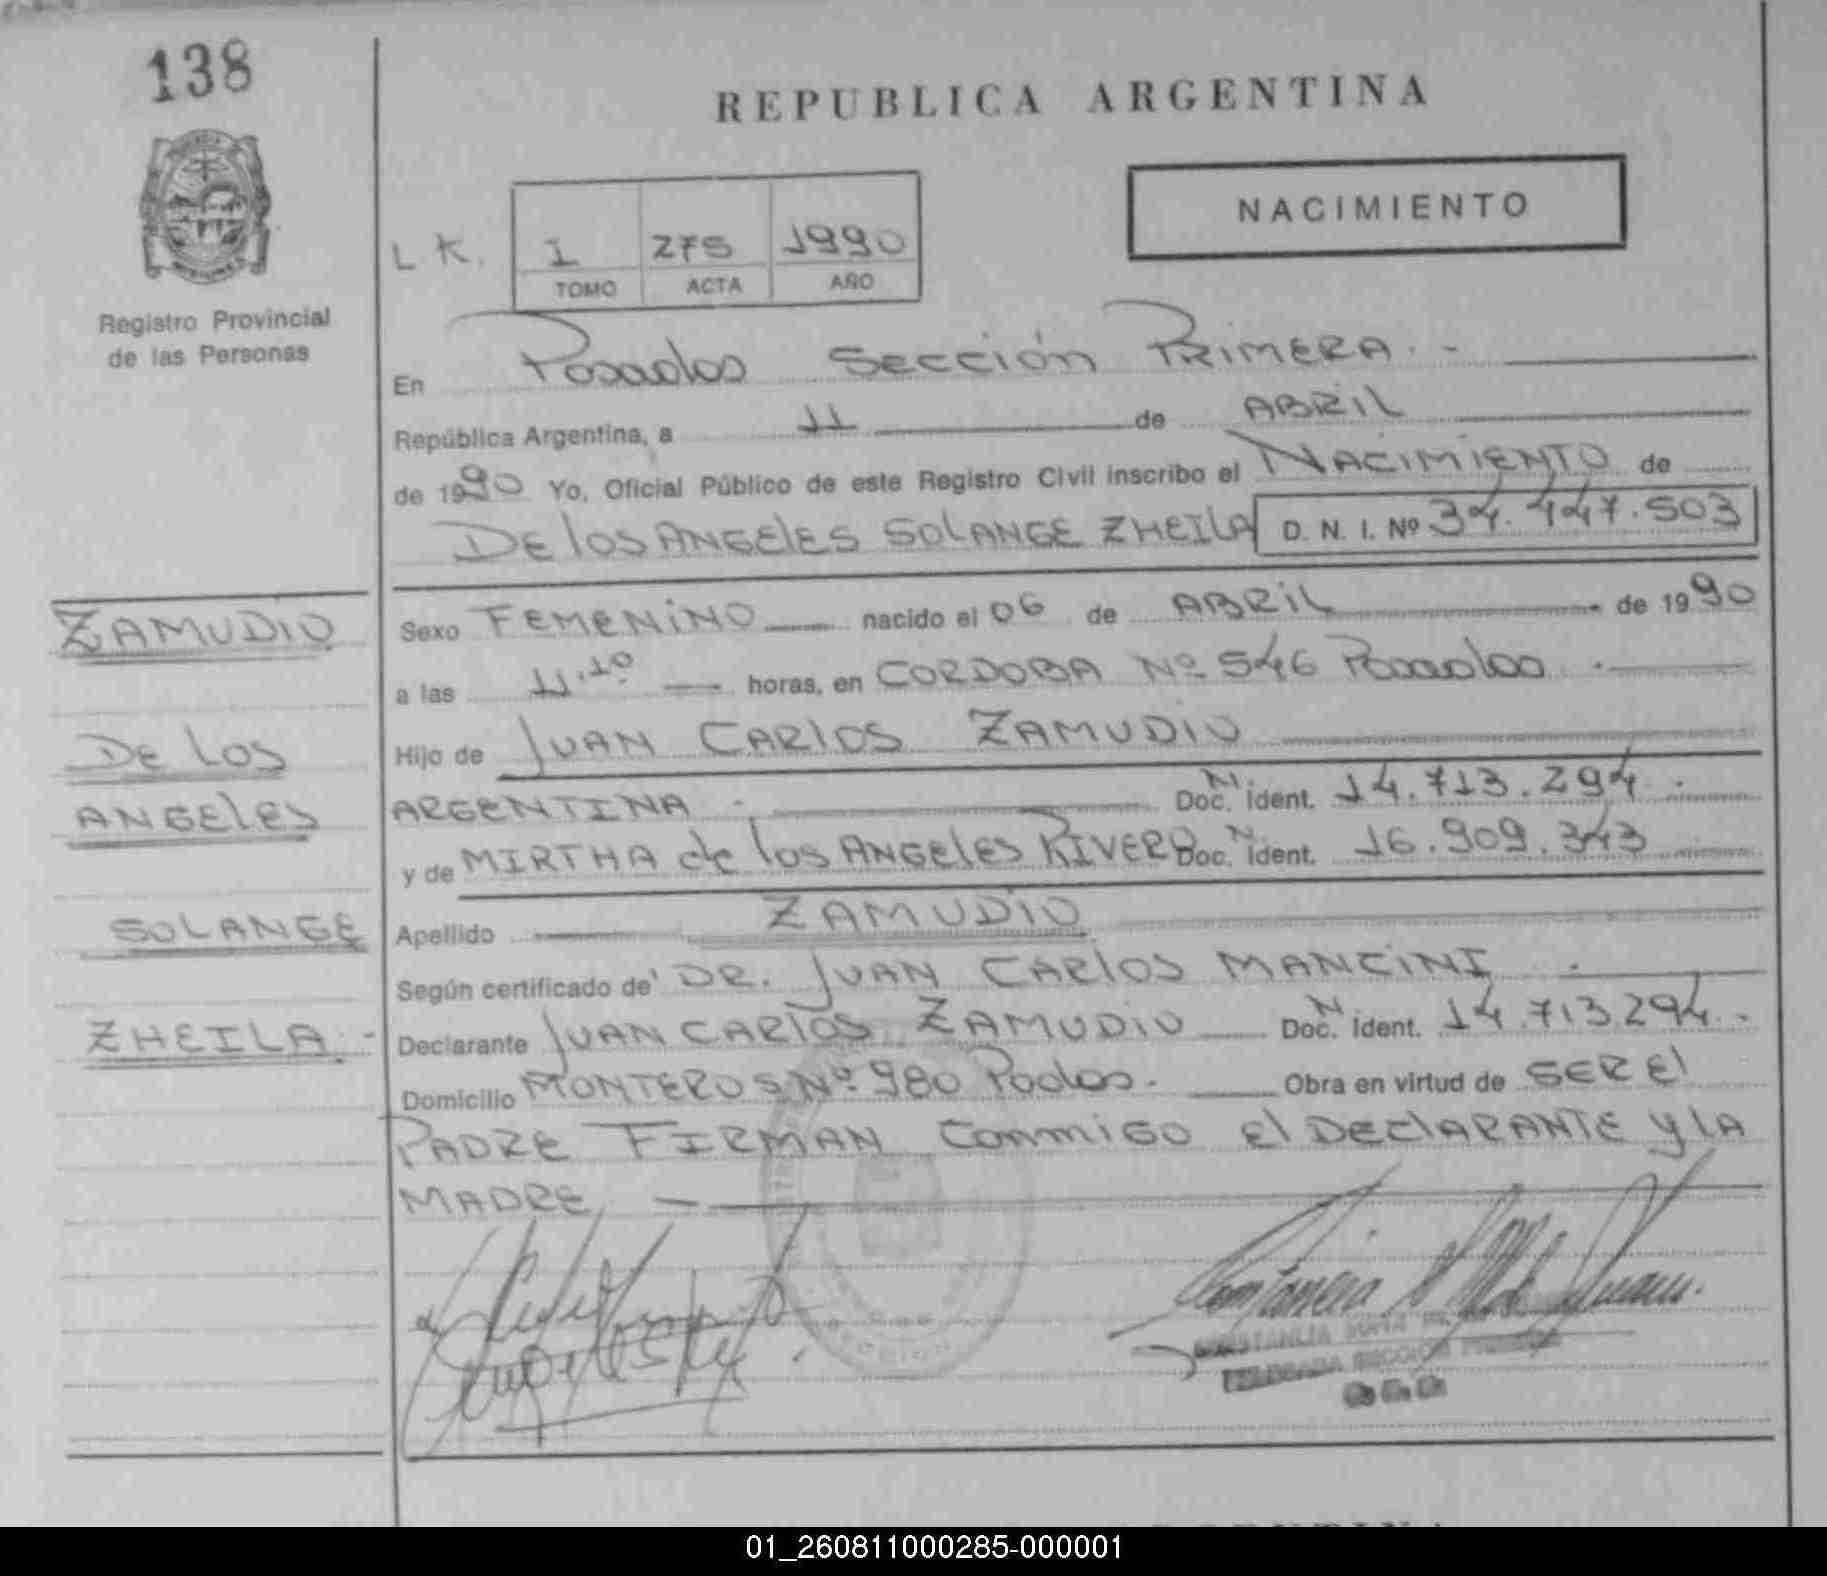 138
REPUBLICA ARGENTINA
NACIMIENTO
L K.
I 275 1990
TOMO ACTA AÑO
Registro Provincial
de las Personas
En Posadas Sección PRIMERA. -
República Argentina, a 11 de ABRIL
de 1990 Yo, Oficial Público de este Registro Civil inscribo el NACIMIENTO de
De los ANGeles SOLANGE ZHEILA D. N. I. Nº 34.447.503
ZAMUDIO
De los
ANGeles
SOLANGE
ZHEILA. -
Sexo FEMENINO nacido el 06 de ABRIL de 1990
a las 11.10 horas, en CORDOBA Nº 546 Posadas.
Hijo de JUAN CARLOS ZAMUDIO
ARGENTINA. Doc. N. Ident. 14.713.294.
y de MIRTHA de los ANGeles RIVERO Doc. N. Ident. 16.909.343
Apellido ZAMUDIO
Según certificado de DR. JUAN CARLOS MANCINI.
Declarante JUAN CARLOS ZAMUDIO Doc. N. Ident. 14.713.294.
Domicilio MONTEROS Nº 980 Podas. Obra en virtud de SER El
PADRE FIRMAN Conmigo El DEClARANTE y lA
MADRE
01_260811000285-000001